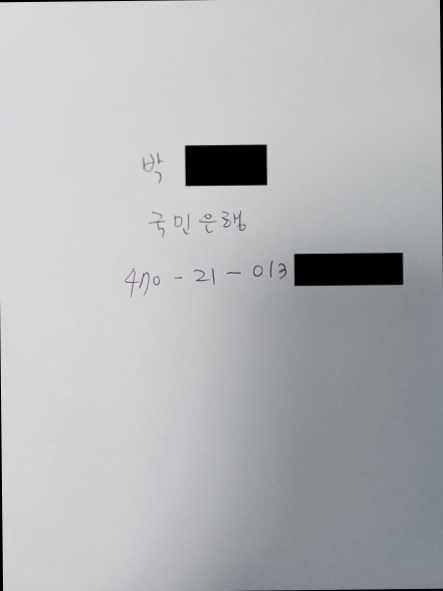 박
국민은행
470-21-013